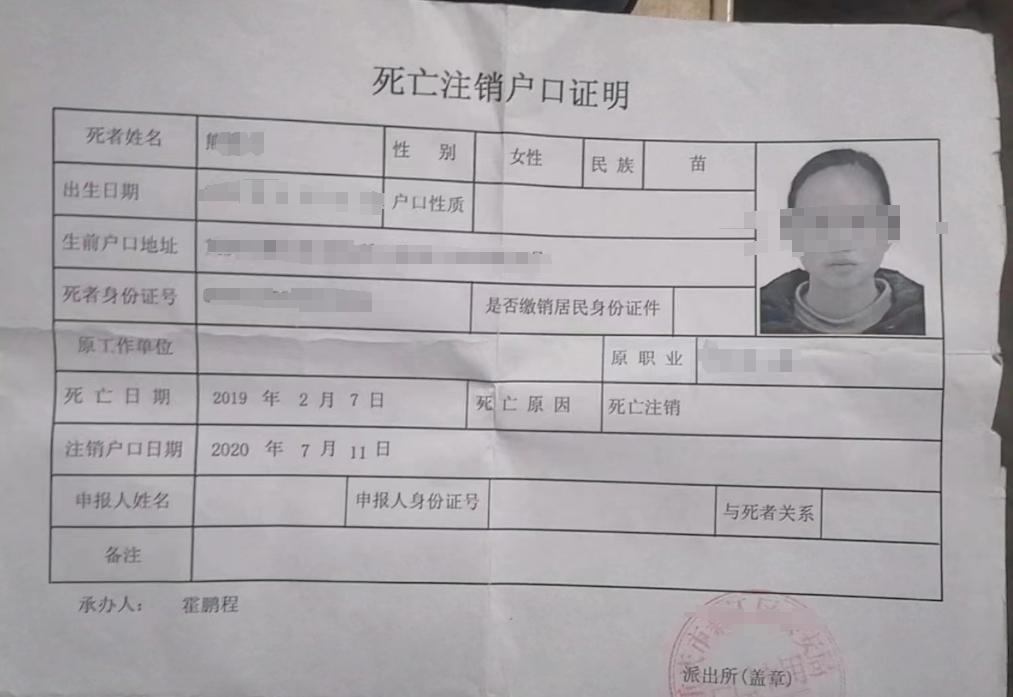 死亡注销户口证明
死者姓名 性 别 女性 民 族 苗
出生日期 户口性质
生前户口地址 号
死者身份证号 是否缴销居民身份证件
原工作单位 原 职 业
死 亡 日 期 2019 年 2 月 7 日 死 亡 原 因 死亡注销
注销户口日期 2020 年 7 月 11 日
申报人姓名 申报人身份证号 与死者关系
备注
承办人: 霍鹏程
派出所(盖章)